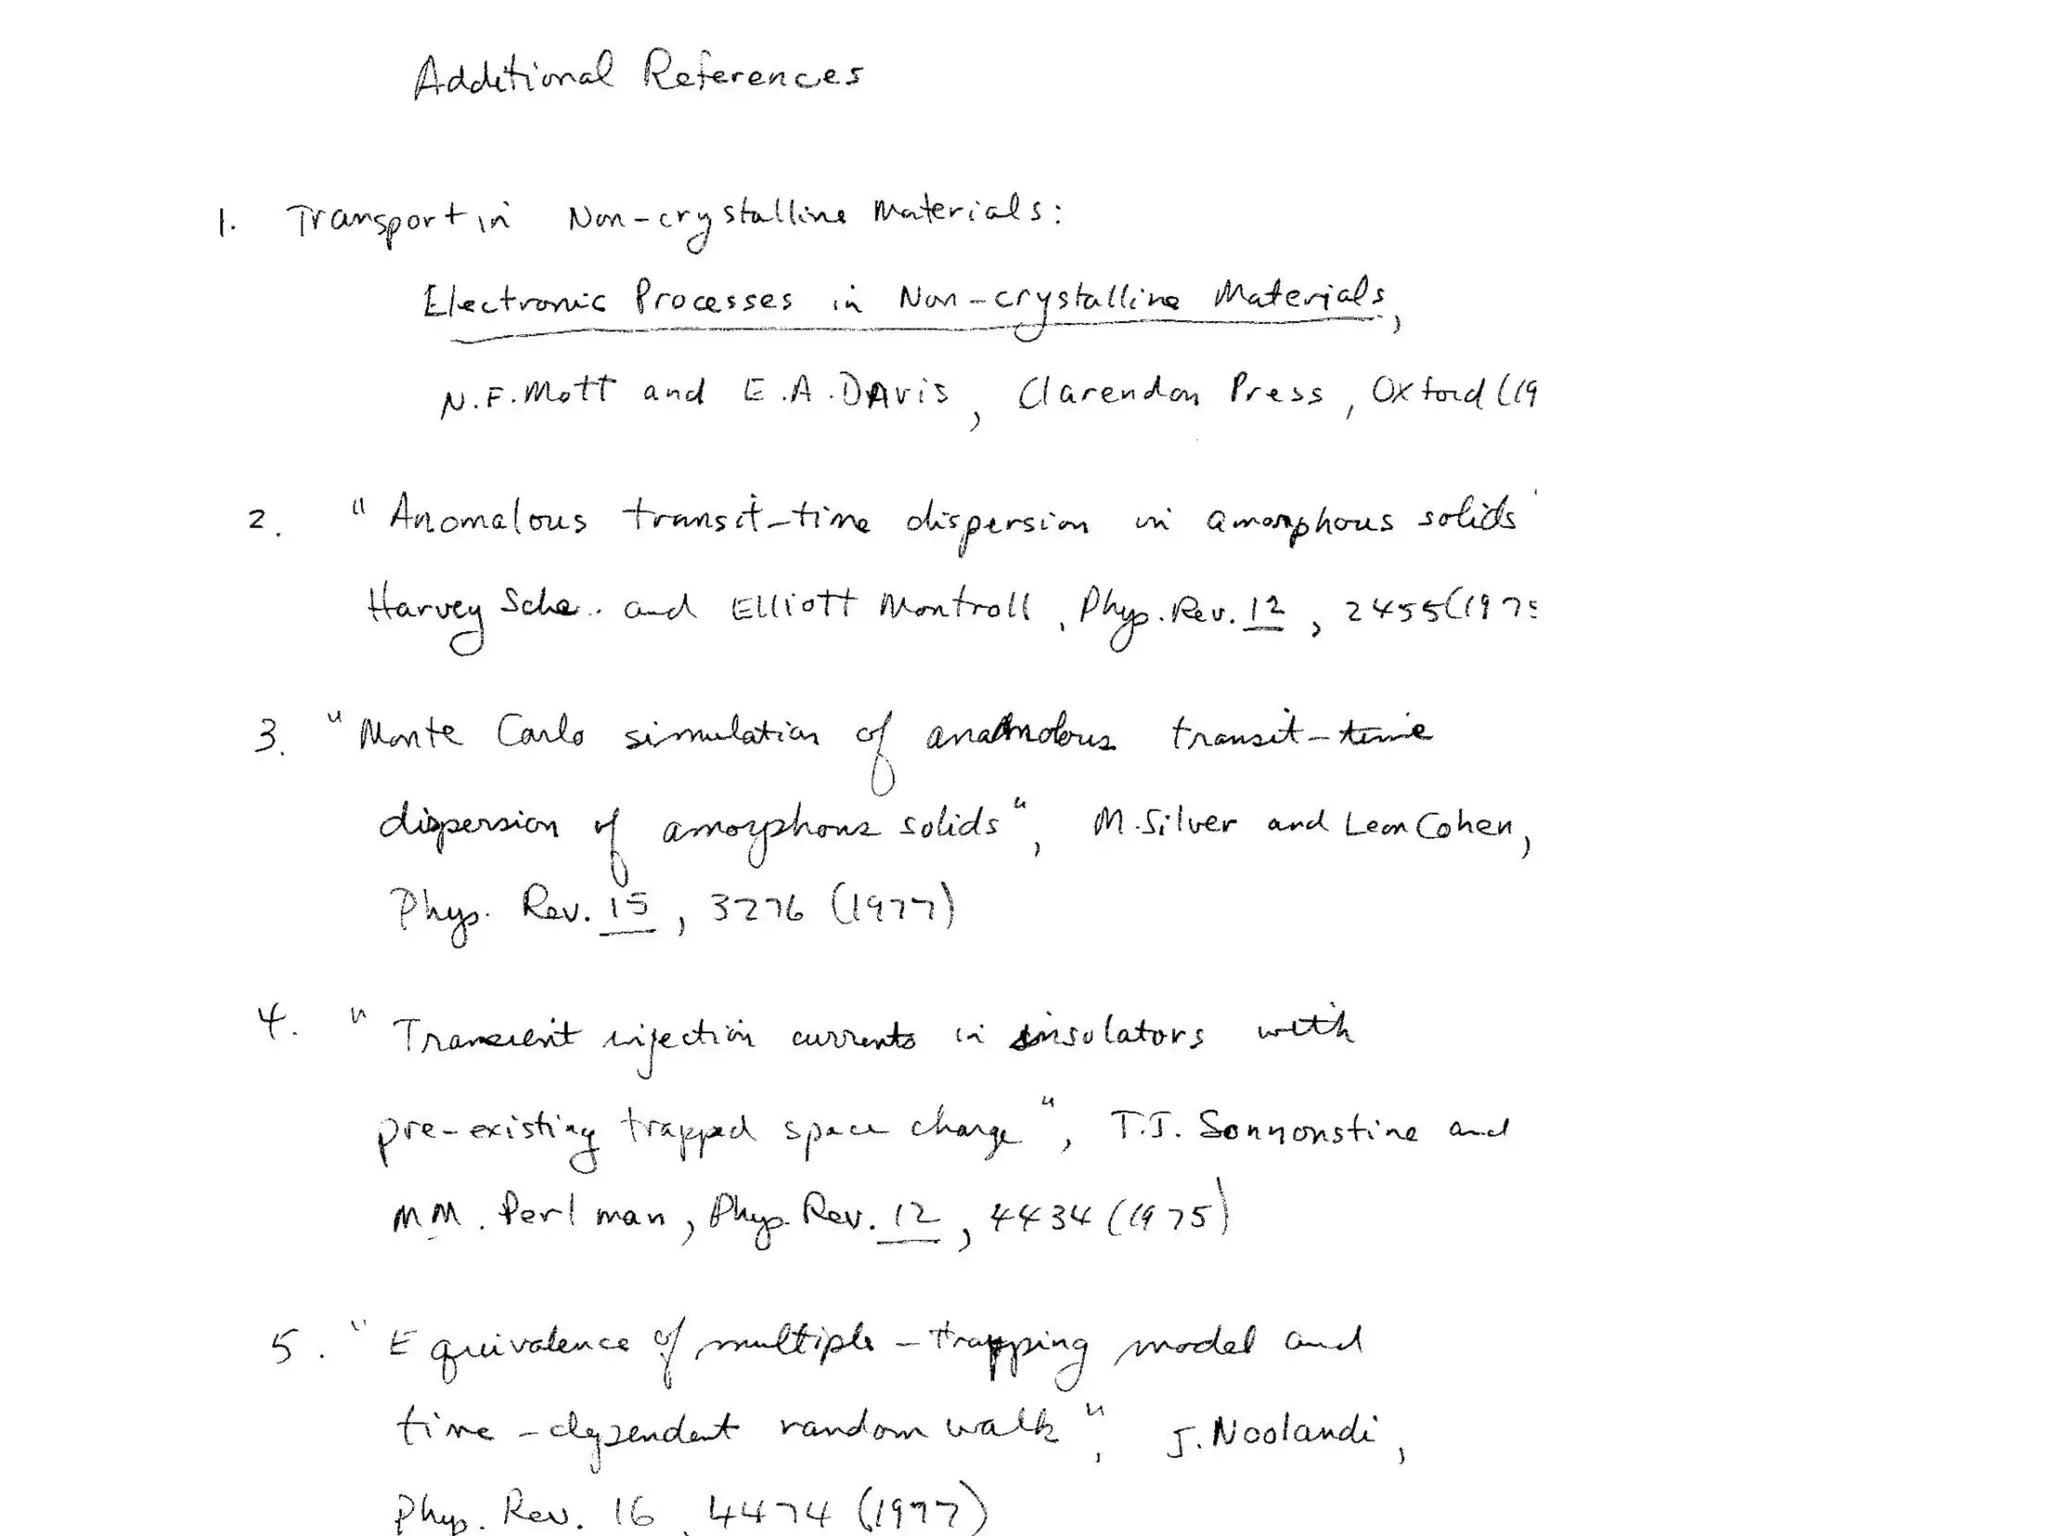 Additional References
1. Transport in Non-crystalline Materials:
Electronic Processes in Non-crystalline Materials,
N.F. Mott and E.A. DAvis, Clarendon Press, Oxford (19
2. "Anomalous transit-time dispersion in amorphous solids"
Harvey Sche.. and Elliott Montroll, Phys. Rev. 12, 2455 (1975
3. "Monte Carlo simulation of transit-time
dispersion of amorphous solids", M. Silver and Leon Cohen,
Phys. Rev. 15, 3276 (1977)
4. "Transient injection currents in insulators with
pre-existing trapped space charge", T.J. Sonnonstine and
M.M. Perlman, Phys. Rev. 12, 4434 (1975)
5. "Equivalence of multiple-trapping model and
time-dependent random walk", J. Noolandi,
Phys. Rev. 16, 4474 (1977)